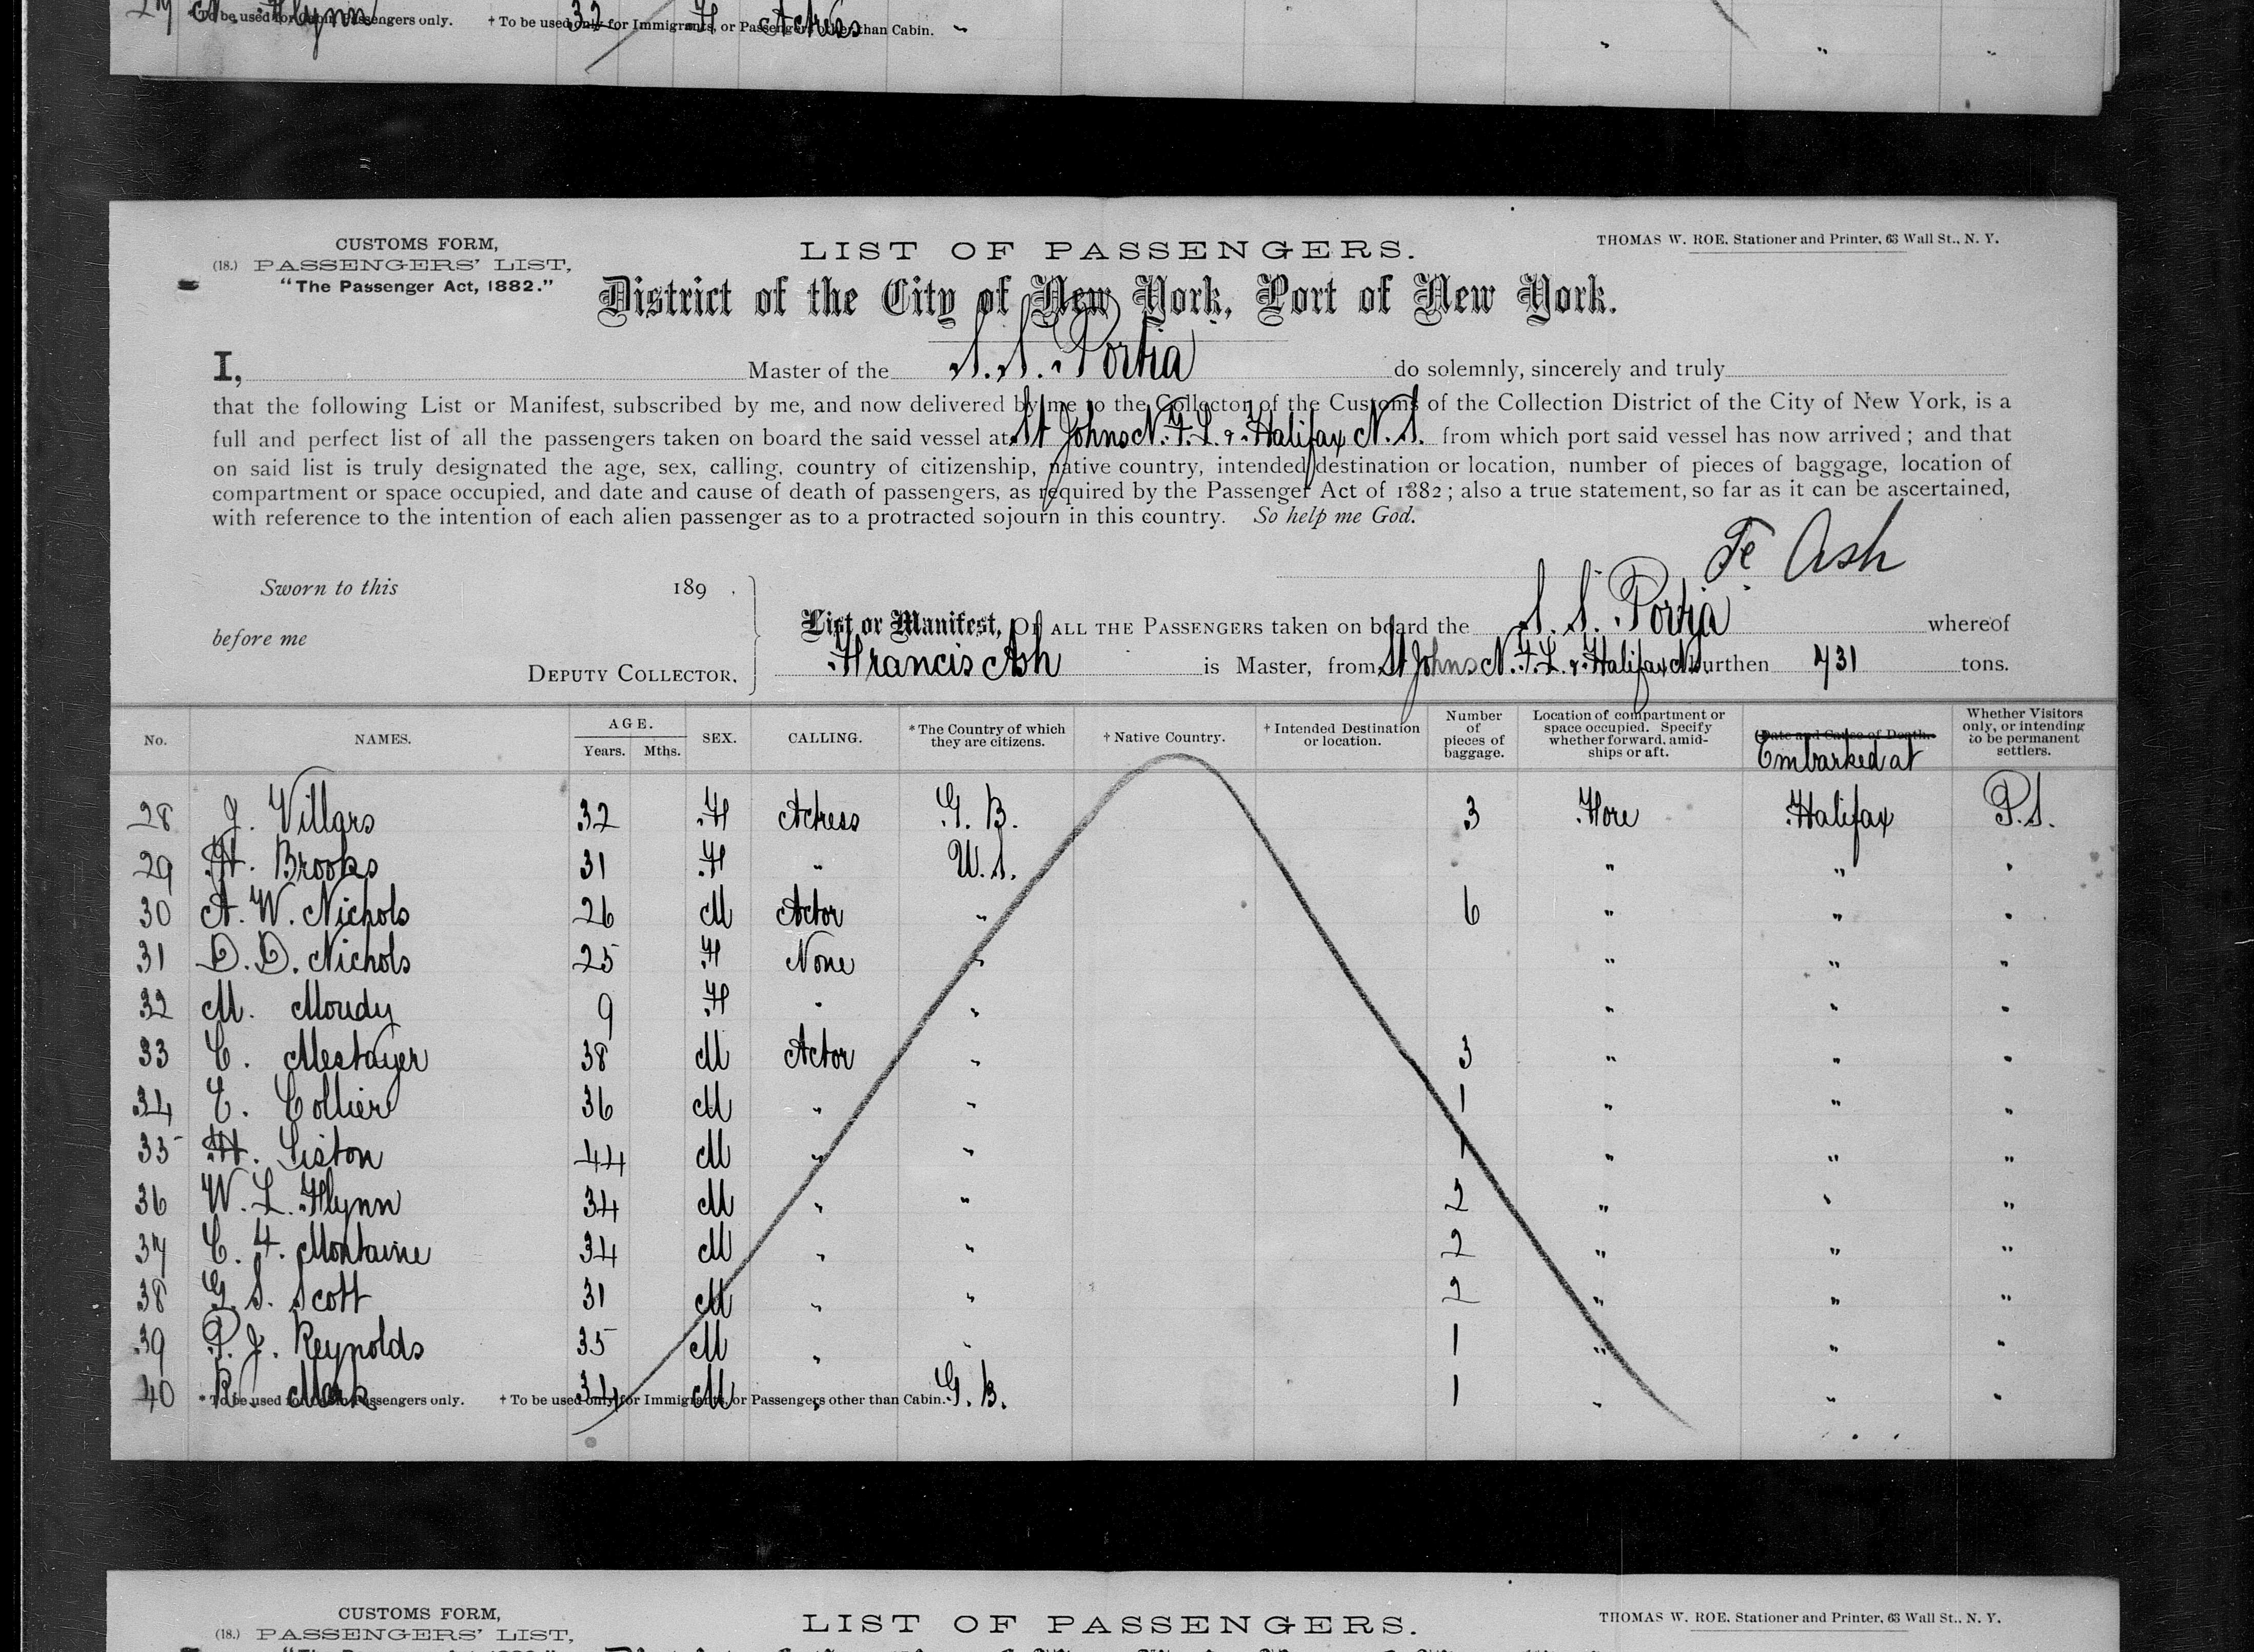 27 Flynn 32 F Actress "
* To be used for Cabin Passengers only. † To be used only for Immigrants, or Passengers other than Cabin.
CUSTOMS FORM,
(18.) PASSENGERS' LIST,
"The Passenger Act, 1882."
LIST OF PASSENGERS.
THOMAS W. ROE, Stationer and Printer, 63 Wall St., N. Y.
District of the City of New York, Port of New York.
I, Master of the S. S. Portia do solemnly, sincerely and truly
that the following List or Manifest, subscribed by me, and now delivered by me to the Collector of the Customs of the Collection District of the City of New York, is a
full and perfect list of all the passengers taken on board the said vessel at St Johns N. F. L. & Halifax N. S. from which port said vessel has now arrived; and that
on said list is truly designated the age, sex, calling, country of citizenship, native country, intended destination or location, number of pieces of baggage, location of
compartment or space occupied, and date and cause of death of passengers, as required by the Passenger Act of 1882; also a true statement, so far as it can be ascertained,
with reference to the intention of each alien passenger as to a protracted sojourn in this country. So help me God.
Ash
Sworn to this 189 .
before me
DEPUTY COLLECTOR.
List or Manifest, OF ALL THE PASSENGERS taken on board the S. S. Portia whereof
Francis Ash is Master, from St Johns N. F. L. & Halifax N.S. burthen 731 tons.
No. NAMES. AGE. Years. Mths. SEX. CALLING. * The Country of which they are citizens. † Native Country. † Intended Destination or location. Number of pieces of baggage. Location of compartment or space occupied. Specify whether forward, amidships or aft. Date and Cause of Death. Embarked at Whether Visitors only, or intending to be permanent settlers.
28 J. Villars 32 F Actress G. B. 3 Fore Halifax P.S.
29 H. Brooks 31 F " U. S. " " "
30 A. W. Nichols 26 M Actor " 6 " " "
31 D. D. Nichols 25 F None " " " "
32 M. Moudy 9 F " " " " "
33 C. Mestayer 38 M Actor " 3 " " "
34 E. Collier 36 M " " 1 " " "
35 H. Liston 44 M " " 1 " " "
36 W. L. Flynn 34 M " " 2 " " "
37 C. F. Montaine 34 M " " 2 " " "
38 G. S. Scott 31 M " " 2 " " "
39 P. J. Reynolds 35 M " " 1 " " "
40 R. Mack 34 M " G. B. 1 " " "
* To be used for Cabin Passengers only. † To be used only for Immigrants, or Passengers other than Cabin.
CUSTOMS FORM,
(18.) PASSENGERS' LIST,
LIST OF PASSENGERS.
THOMAS W. ROE, Stationer and Printer, 63 Wall St., N. Y.